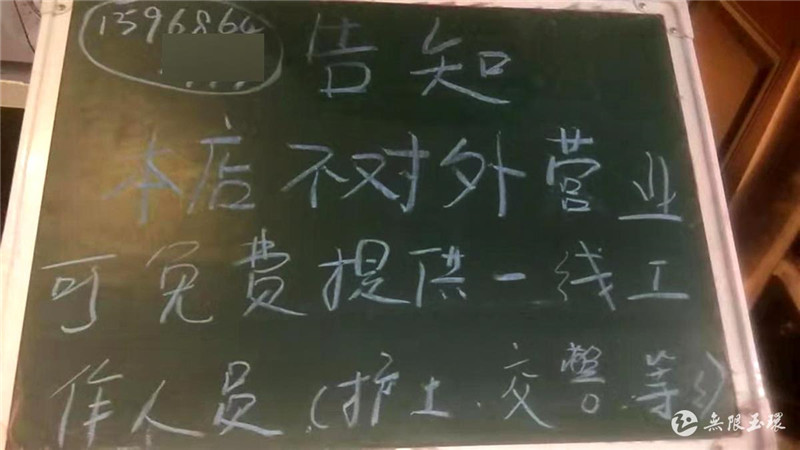 1396864
告知
本店不对外营业
可免费提供一线工
作人员(护士、交警、等)
無限玉環